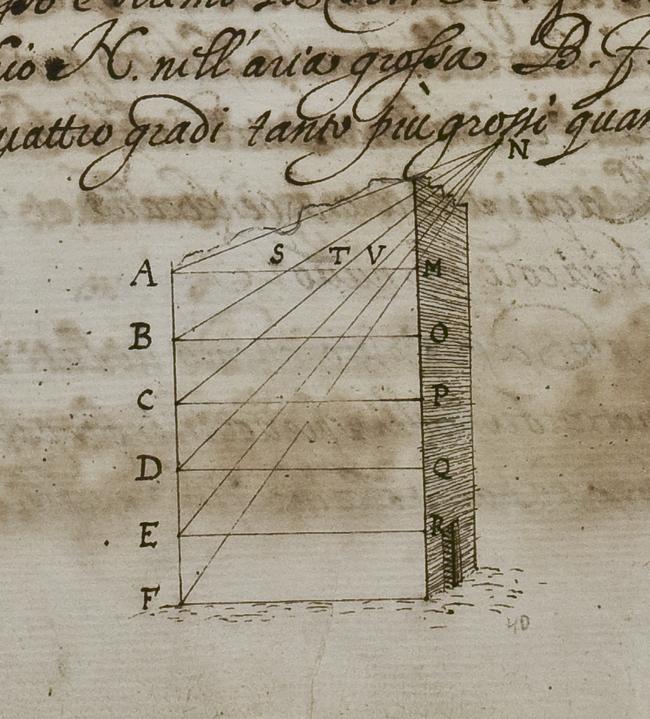 N. nell'aria grossa B. f
quattro gradi tanto più grossi quan
N
S T V
A M
B O
C P
D Q
E R
F